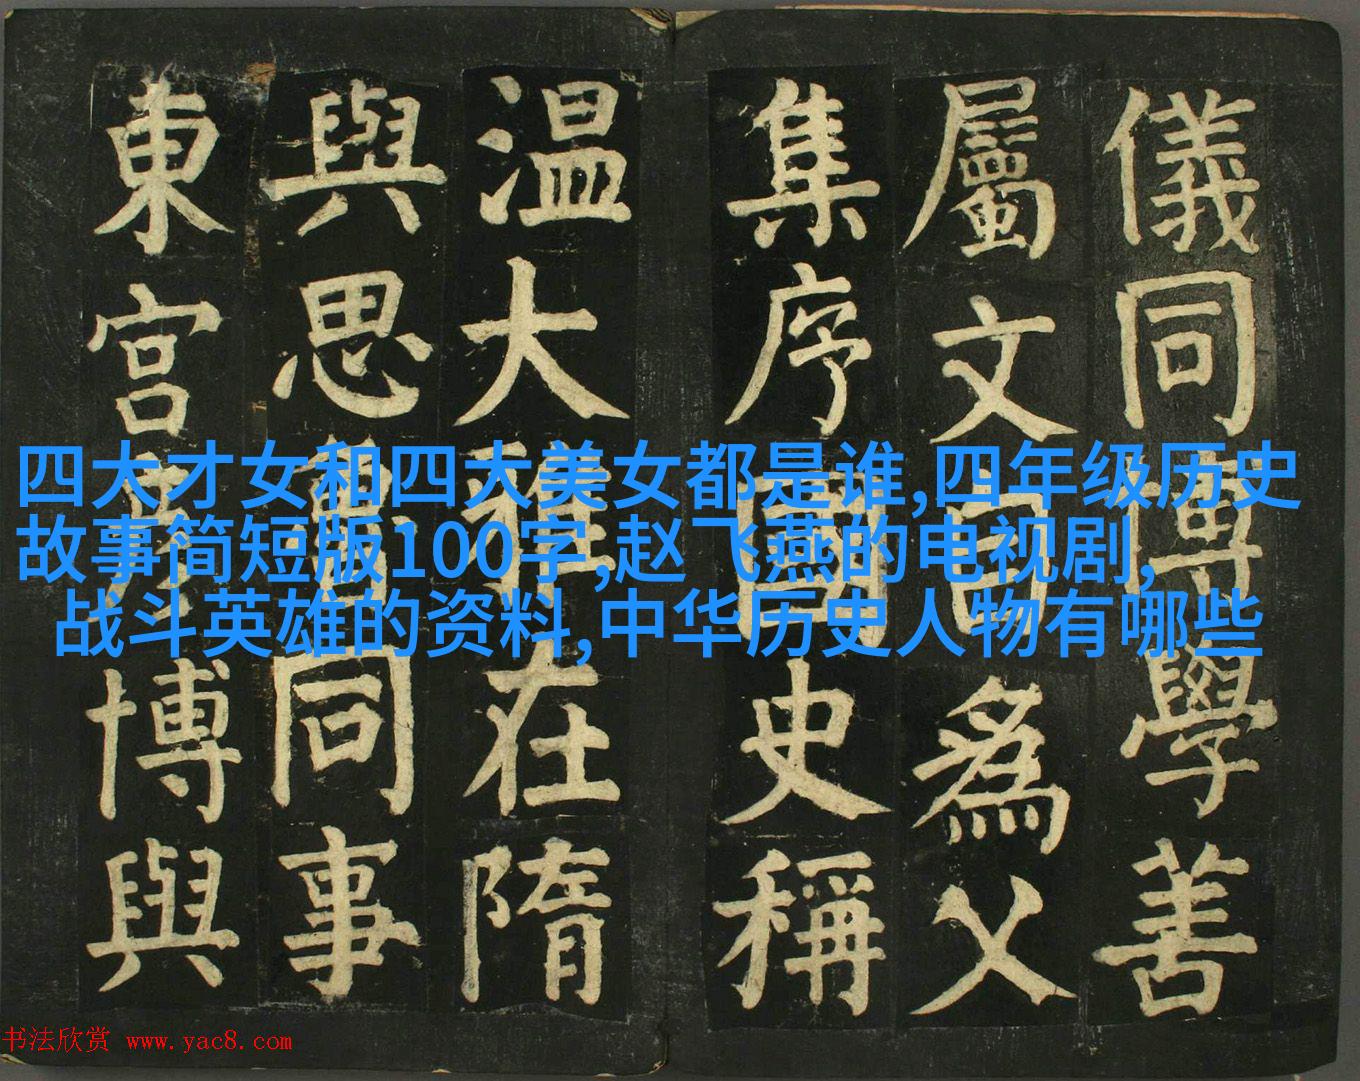 儀同博學善
屬文為父
集序國史稱
温大雅在隋
與思同事
東宮博與
四大才女和四大美女都是谁,四年级历史
故事简短版100字,赵飞燕的电视剧,
战斗英雄的资料,中华历史人物有哪些
书法欣赏 www.yac8.com